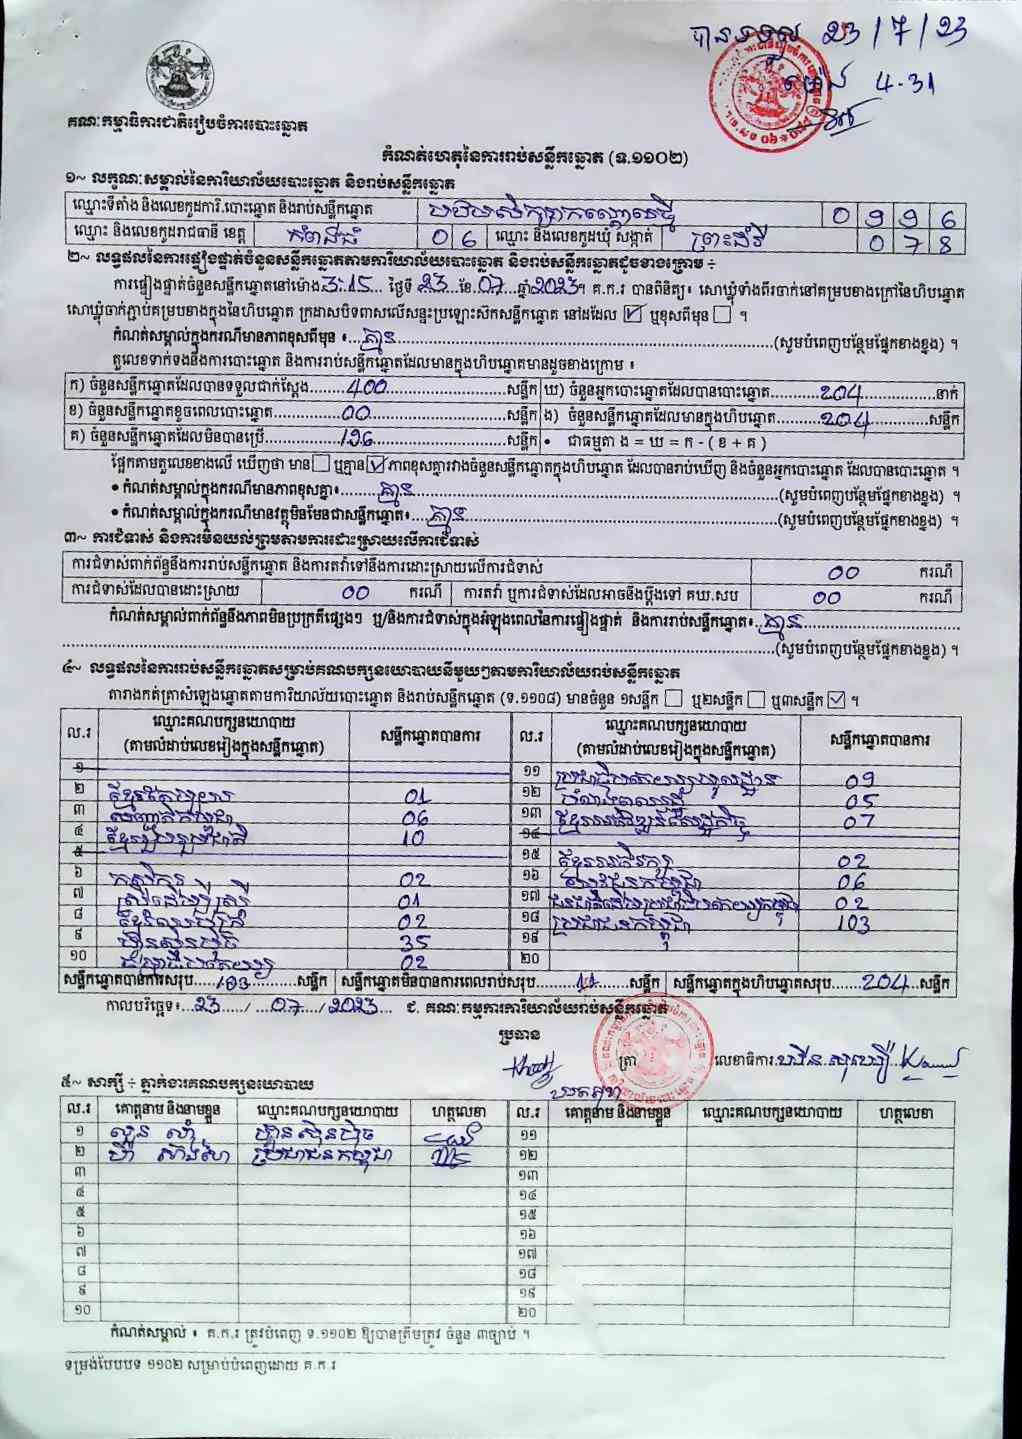 បានទទួល 23/7/23
ម៉ោង 4-31
គណៈកម្មាធិការជាតិរៀបចំការបោះឆ្នោត
កំណត់ហេតុនៃការរាប់សន្លឹកឆ្នោត (ទ.១១០២)
១~ លក្ខណៈសម្គាល់នៃការិយាល័យបោះឆ្នោត និងរាប់សន្លឹកឆ្នោត
ឈ្មោះទីតាំង និងលេខកូដការិ.បោះឆ្នោត និងរាប់សន្លឹកឆ្នោត 0 9 9 6
ឈ្មោះ និងលេខកូដរាជធានី ខេត្ត កំពង់ធំ 0 6 ឈ្មោះ និងលេខកូដឃុំ សង្កាត់ 0 7 8
២~ លទ្ធផលនៃការផ្ទៀងផ្ទាត់ចំនួនសន្លឹកឆ្នោតតាមការិយាល័យបោះឆ្នោត និងរាប់សន្លឹកឆ្នោតដូចខាងក្រោម ÷
ការផ្ទៀងផ្ទាត់ចំនួនសន្លឹកឆ្នោតនៅម៉ោង 3:15 ថ្ងៃទី 23 ខែ 07 ឆ្នាំ 2023។ គ.ក.រ បានពិនិត្យ៖ សោឃ្លុំទាំងពីរចាក់នៅគម្របខាងក្រៅនៃហិបឆ្នោត
សោឃ្លុំចាក់ភ្ជាប់គម្របខាងក្នុងនៃហិបឆ្នោត ក្រដាសបិទពាសលើសន្ទះប្រឡោះស៊កសន្លឹកឆ្នោត នៅដដែល ☑ ឬខុសពីមុន ☐ ។
កំណត់សម្គាល់ក្នុងករណីមានភាពខុសពីមុន ៖ គ្មាន (សូមបំពេញបន្ថែមផ្នែកខាងខ្នង) ។
តួលេខទាក់ទងនឹងការបោះឆ្នោត និងការរាប់សន្លឹកឆ្នោតដែលមានក្នុងហិបឆ្នោតមានដូចខាងក្រោម ៖
ក) ចំនួនសន្លឹកឆ្នោតដែលបានទទួលជាក់ស្ដែង 400 សន្លឹក ឃ) ចំនួនអ្នកបោះឆ្នោតដែលបានបោះឆ្នោត 204 នាក់
ខ) ចំនួនសន្លឹកឆ្នោតខូចពេលបោះឆ្នោត 00 សន្លឹក ង) ចំនួនសន្លឹកឆ្នោតដែលមានក្នុងហិបឆ្នោត 204 សន្លឹក
គ) ចំនួនសន្លឹកឆ្នោតដែលមិនបានប្រើ 196 សន្លឹក • ជាធម្មតា ង = ឃ = ក - ( ខ + គ )
ផ្អែកតាមតួលេខខាងលើ ឃើញថា មាន ☐ ឬគ្មាន ☑ ភាពខុសគ្នារវាងចំនួនសន្លឹកឆ្នោតក្នុងហិបឆ្នោត ដែលបានរាប់ឃើញ និងចំនួនអ្នកបោះឆ្នោត ដែលបានបោះឆ្នោត ។
• កំណត់សម្គាល់ក្នុងករណីមានភាពខុសគ្នា៖ គ្មាន (សូមបំពេញបន្ថែមផ្នែកខាងខ្នង) ។
• កំណត់សម្គាល់ក្នុងករណីមានវត្ថុមិនមែនជាសន្លឹកឆ្នោត៖ គ្មាន (សូមបំពេញបន្ថែមផ្នែកខាងខ្នង) ។
៣~ ការជំទាស់ និងការមិនយល់ព្រមតាមការដោះស្រាយលើការជំទាស់
ការជំទាស់ពាក់ព័ន្ធនឹងការរាប់សន្លឹកឆ្នោត និងការតវ៉ាទៅនឹងការដោះស្រាយលើការជំទាស់ 00 ករណី
ការជំទាស់ដែលបានដោះស្រាយ 00 ករណី ការតវ៉ា ឬការជំទាស់ដែលអាចនឹងប្ដឹងទៅ គឃ.សប 00 ករណី
កំណត់សម្គាល់ពាក់ព័ន្ធនឹងភាពមិនប្រក្រតីផ្សេងៗ ឬ/និងការជំទាស់ក្នុងអំឡុងពេលនៃការផ្ទៀងផ្ទាត់ និងការរាប់សន្លឹកឆ្នោត៖ គ្មាន
(សូមបំពេញបន្ថែមផ្នែកខាងខ្នង) ។
៤~ លទ្ធផលនៃការរាប់សន្លឹកឆ្នោតសម្រាប់គណបក្សនយោបាយនីមួយៗតាមការិយាល័យរាប់សន្លឹកឆ្នោត
តារាងកត់ត្រាសំឡេងឆ្នោតតាមការិយាល័យបោះឆ្នោត និងរាប់សន្លឹកឆ្នោត (ទ.១១០៨) មានចំនួន ១សន្លឹក ☐ ឬ២សន្លឹក ☐ ឬ៣សន្លឹក ☑ ។
ល.រ ឈ្មោះគណបក្សនយោបាយ (តាមលំដាប់លេខរៀងក្នុងសន្លឹកឆ្នោត) សន្លឹកឆ្នោតបានការ ល.រ ឈ្មោះគណបក្សនយោបាយ (តាមលំដាប់លេខរៀងក្នុងសន្លឹកឆ្នោត) សន្លឹកឆ្នោតបានការ
១ ១១ 09
២ 01 ១២ 05
៣ 06 ១៣ 07
៤ 10 ១៤
៥ ១៥ 02
៦ កសិករ 02 ១៦ 06
៧ 01 ១៧ 02
៨ 02 ១៨ ប្រជាជនកម្ពុជា 103
៩ ហ៊្វុនស៊ិនប៉ិច 35 ១៩
១០ 02 ២០
សន្លឹកឆ្នោតបានការសរុប 193 សន្លឹក សន្លឹកឆ្នោតមិនបានការពេលរាប់សរុប 11 សន្លឹក សន្លឹកឆ្នោតក្នុងហិបឆ្នោតសរុប 204 សន្លឹក
កាលបរិច្ឆេទ៖ 23 / 07 / 2023 ជ. គណៈកម្មការការិយាល័យរាប់សន្លឹកឆ្នោត
ប្រធាន
ត្រា លេខាធិការ
៥~ សាក្សី ÷ ភ្នាក់ងារគណបក្សនយោបាយ
ល.រ គោត្តនាម និងនាមខ្លួន ឈ្មោះគណបក្សនយោបាយ ហត្ថលេខា ល.រ គោត្តនាម និងនាមខ្លួន ឈ្មោះគណបក្សនយោបាយ ហត្ថលេខា
១ ហ៊្វុនស៊ិនប៉ិច ១១
២ ប្រជាជនកម្ពុជា ១២
៣ ១៣
៤ ១៤
៥ ១៥
៦ ១៦
៧ ១៧
៨ ១៨
៩ ១៩
១០ ២០
កំណត់សម្គាល់ ៖ គ.ក.រ ត្រូវបំពេញ ទ.១១០២ ឱ្យបានត្រឹមត្រូវ ចំនួន ៣ច្បាប់ ។
ទម្រង់បែបបទ ១១០២ សម្រាប់បំពេញដោយ គ.ក.រ